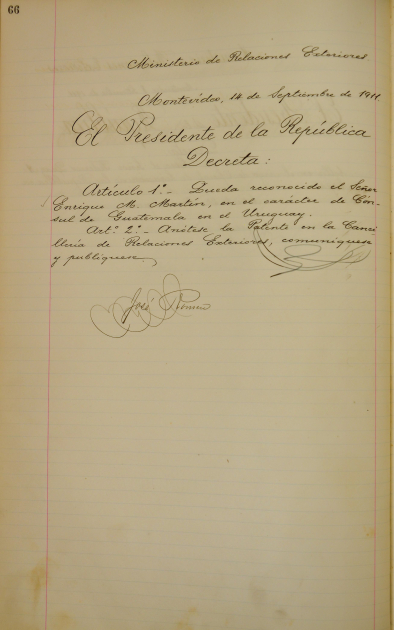 66
Ministerio de Relaciones Exteriores
Montevideo, 14 de Septiembre de 1911.
El Presidente de la República
Decreta:
Artículo 1º.- Queda reconocido el Señor
Enrique M. Martín, en el carácter de Cón-
sul de Guatemala en el Uruguay.
Artº. 2º.- Anótese la Patente en la Canci
llería de Relaciones Exteriores, comuníquese
y publíquese
José